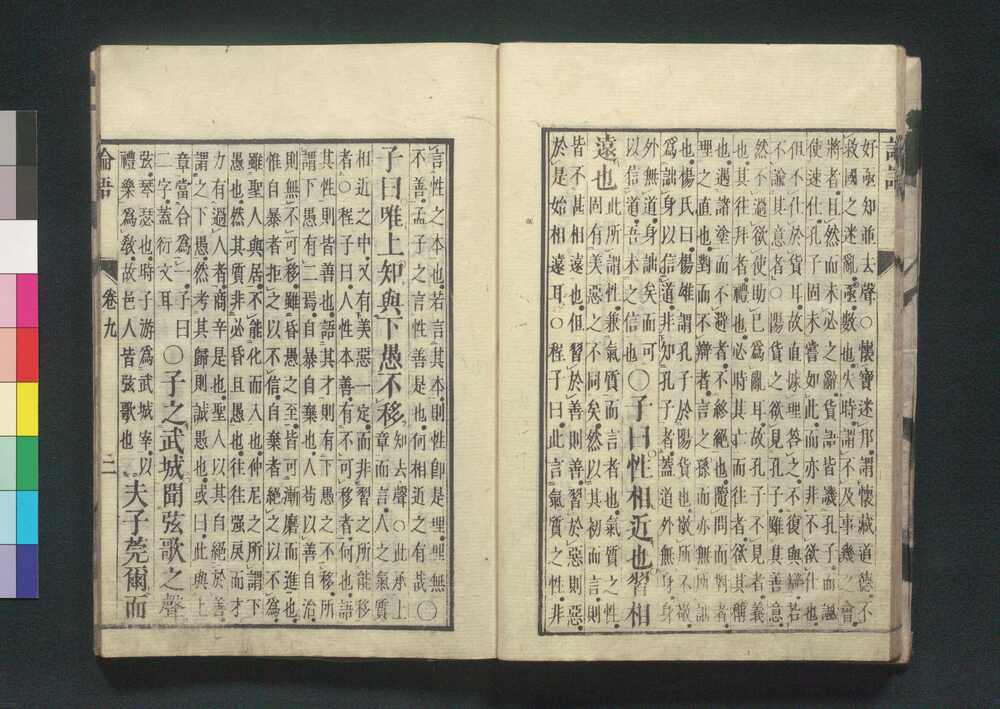 論語
好亟知並去聲○懷寶迷邦謂懷藏道德不
救國之迷亂亟數也失時謂不及事幾之會
將者且然而未必之辭貨語皆譏孔子而諷
使速仕孔子固未嘗如此而亦非不欲仕也
但不仕於貨耳故直據理答之不復與辯若
不諭其意者○陽貨之欲見孔子雖其善意
然不過欲使助己爲亂耳故孔子不見者義
也其往拜者禮也必時其亡而往者欲其稱
也遇諸塗而不避者不終絕也隨問而對者
理之直也對而不辯者言之孫而亦無所詘
也楊氏曰楊雄謂孔子於陽貨也敬所不敬
爲詘身以信道非知孔子者蓋道外無身身
外無道身詘矣而可
以信道吾未之信也○子曰性相近也習相
遠也此所謂性兼氣質而言者也氣質之性
固有美惡之不同矣然以其初而言則
皆不甚相遠也但習於善則善習於惡則惡
於是始相遠耳○程子曰此言氣質之性非
言性之本也若言其本則性卽是理理無
不善孟子之言性善是也何相近之有哉○
子曰唯上知與下愚不移知去聲○此承上
章而言人之氣質
相近之中又有美惡一定而非習之所能移
者○程子曰人性本善有不可移者何也語
其性則皆善也語其才則有下愚之不移所
謂下愚有二焉自暴自棄也人苟以善自治
則無不可移雖昏愚之至皆可漸磨而進也
惟自暴者拒之以不信自棄者絕之以不爲
雖聖人與居不能化而入也仲尼之所謂下
愚也然其質非必昏且愚也往往强戾而才
力有過人者商辛是也聖人以其自絕於善
謂之下愚然考其歸則誠愚也或曰此與上
章當合爲一子曰
二字蓋衍文耳○子之武城聞弦歌之聲
弦琴瑟也時子游爲武城宰以
禮樂爲敎故邑人皆弦歌也夫子莞爾而
論語
卷九
二